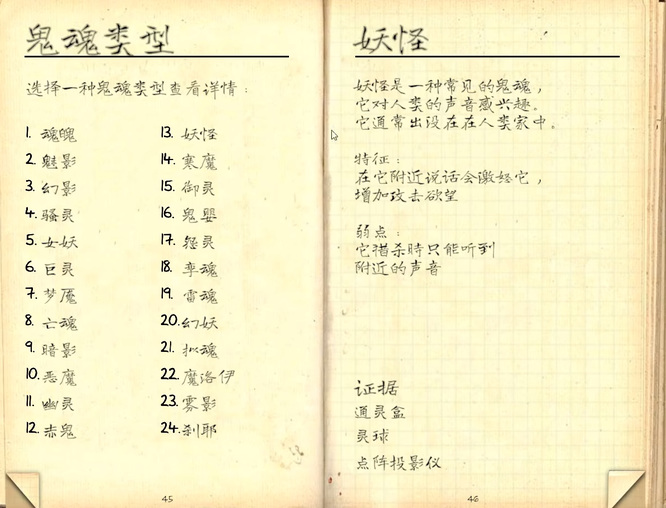 鬼魂类型
选择一种鬼魂类型查看详情：
1. 魂魄
2. 魅影
3. 幻影
4. 骚灵
5. 女妖
6. 巨灵
7. 梦魇
8. 亡魂
9. 暗影
10. 恶魔
11. 幽灵
12. 赤鬼
13. 妖怪
14. 寒魔
15. 御灵
16. 鬼婴
17. 怨灵
18. 孪魂
19. 雷魂
20. 幻妖
21. 拟魂
22. 魔洛伊
23. 雾影
24. 刹耶
45
妖怪
妖怪是一种常见的鬼魂，
它对人类的声音感兴趣。
它通常出没在在人类家中。
特征：
在它附近说话会激怒它，
增加攻击欲望
弱点：
它猎杀时只能听到
附近的声音
证据
通灵盒
灵球
点阵投影仪
46